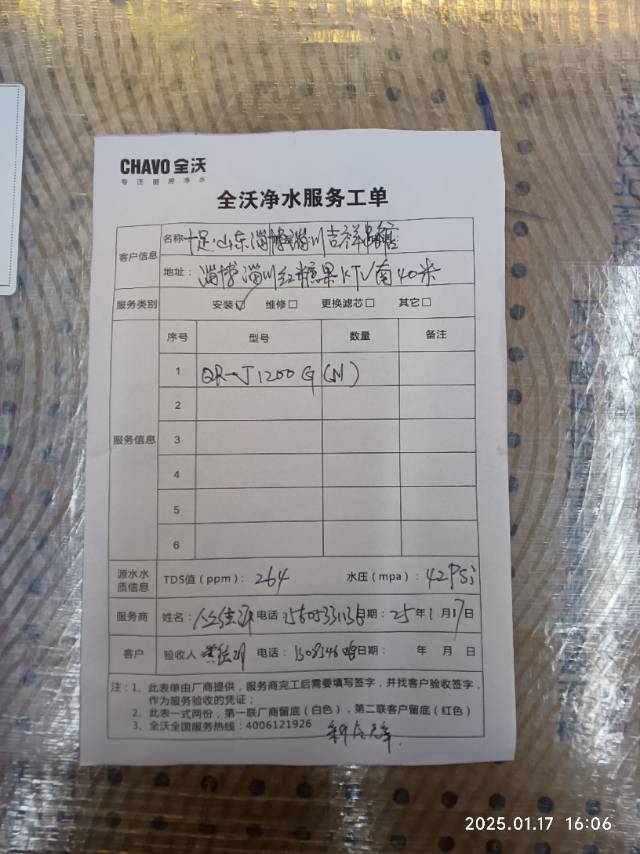 CHAVO 全沃
专注厨房净水
全沃净水服务工单
客户信息
名称 十足山东淄博淄川吉祥
地址： 淄博淄川红糖果KTV南40米
服务类别 安装☑ 维修□ 更换滤芯□ 其它□
服务信息
序号 型号 数量 备注
1 QR-J1200G(M)
2
3
4
5
6
源水水质信息 TDS值（ppm）： 264 水压（mpa）： 42PSi
服务商 姓名： 电话 日期： 25年1月17日
客户 验收人 电话： 日期： 年 月 日
注：1、此表单由厂商提供，服务商完工后需要填写签字，并找客户验收签字，
作为服务验收的凭证；
2、此表一式两份，第一联厂商留底（白色），第二联客户留底（红色）
3、全沃全国服务热线：4006121926
2025.01.17 16:06